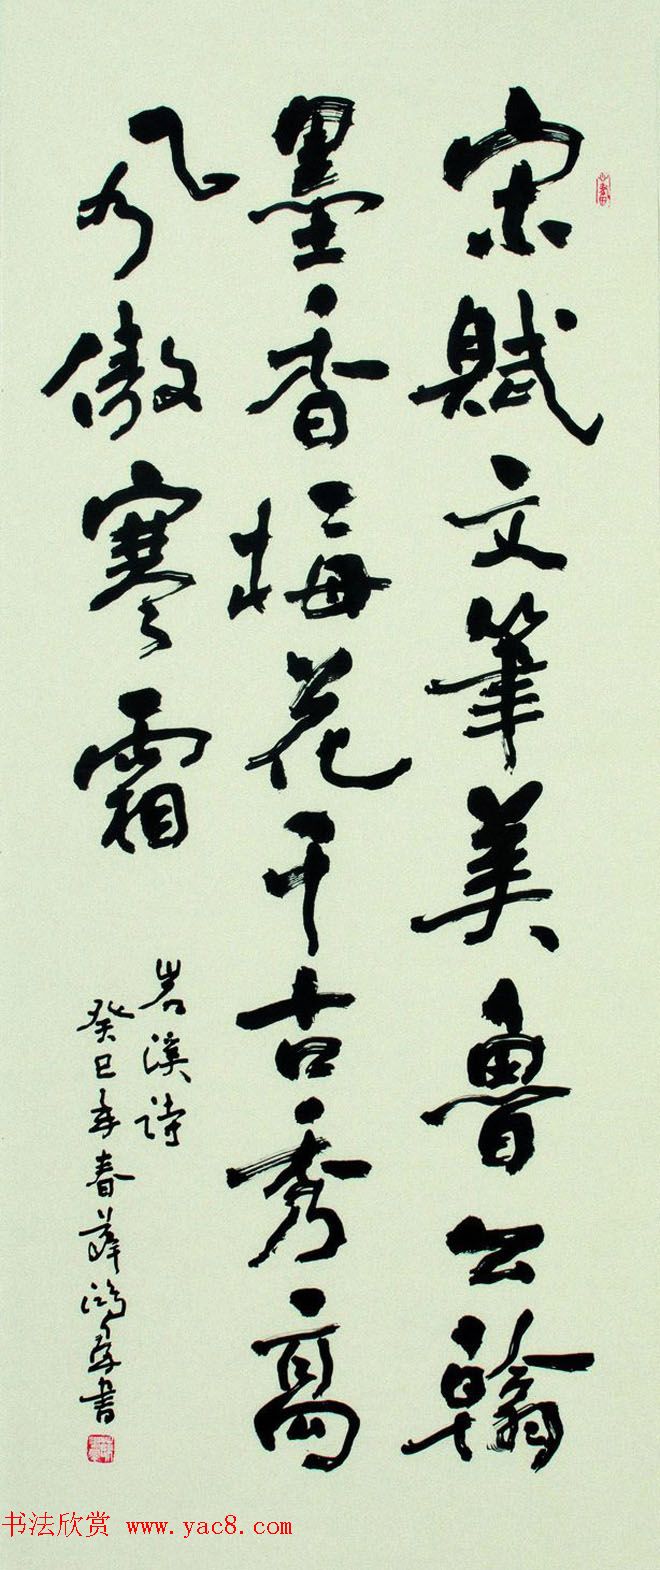 宋賦文筆美魯公翰
墨香梅花千古秀高
风傲寒霜
岩溪詩
癸巳年春薛鴻春書
书法欣赏 www.yac8.com